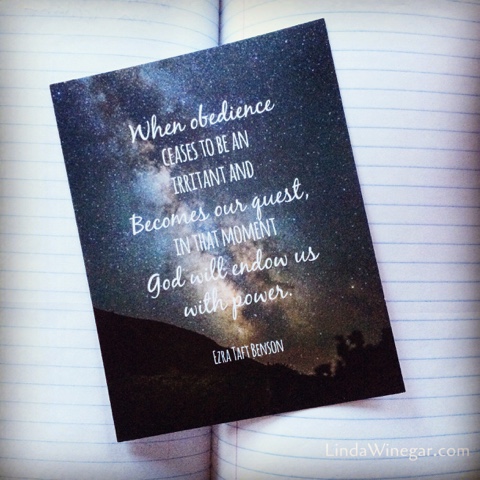 When obedience
CEASES TO BE AN
IRRITANT AND
Becomes our quest,
IN THAT MOMENT
God will endow us
with power.
EZRA TAFT BENSON
LindaWinegar.com